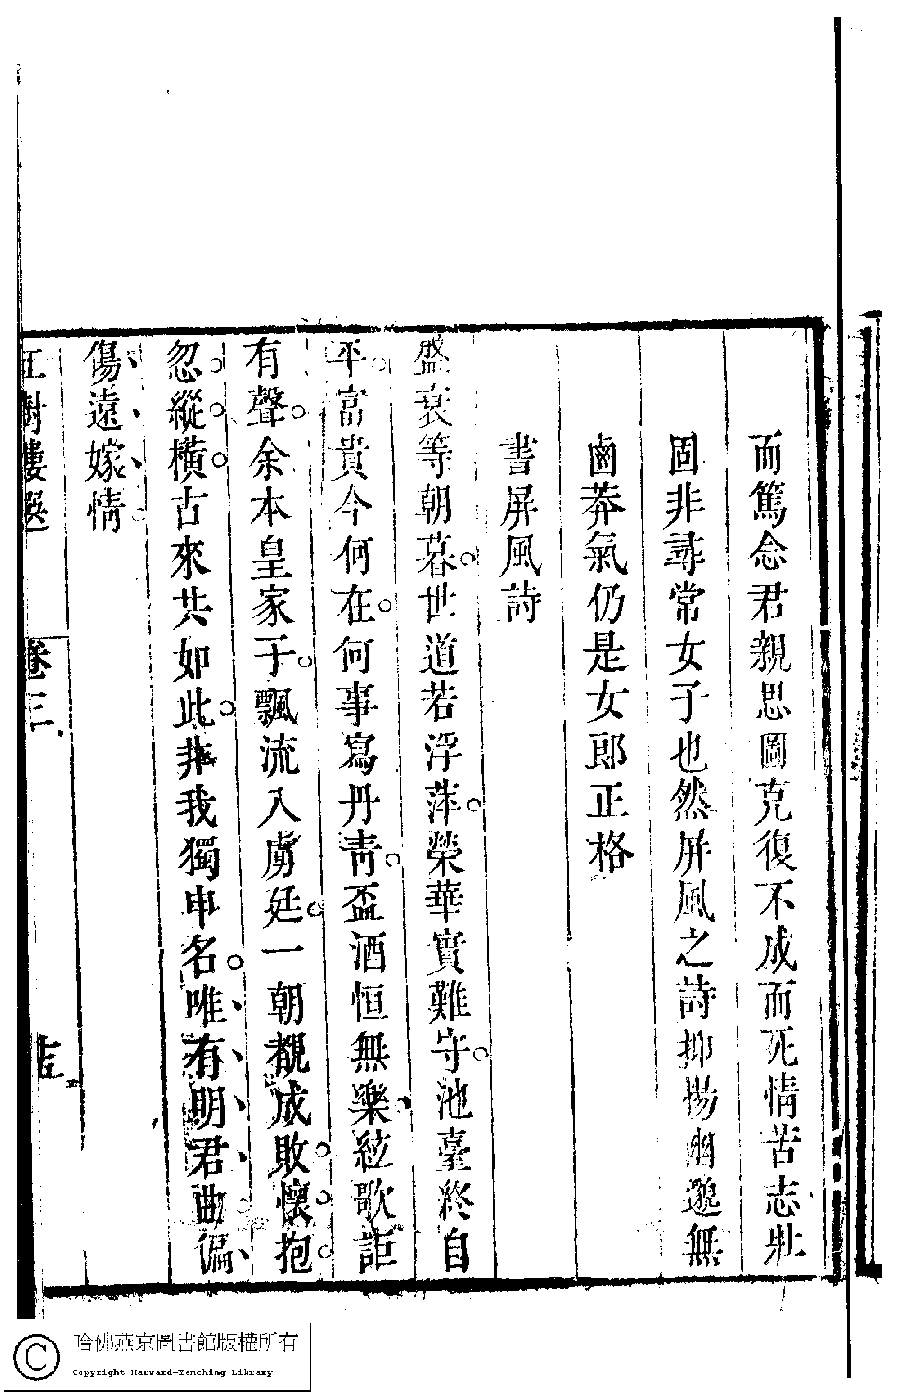 而篤念君親思圖克復不成而死情苦志壯
固非尋常女子也然屏風之詩抑揚幽邈無
鹵莽氣仍是女郎正格
書屏風詩
盛衰等朝暮世道若浮萍榮華實難守池臺終自
平富貴今何在何事寫丹青盃酒恒無樂絃歌詎
有聲余本皇家子飄流入虜廷一朝覩成敗懷抱
忽縱橫古來共如此非我獨申名唯有明君曲偏
傷遠嫁情
紅樹樓選
卷三
哈佛燕京圖書館版權所有
Copyright Harvard-Yenching Library